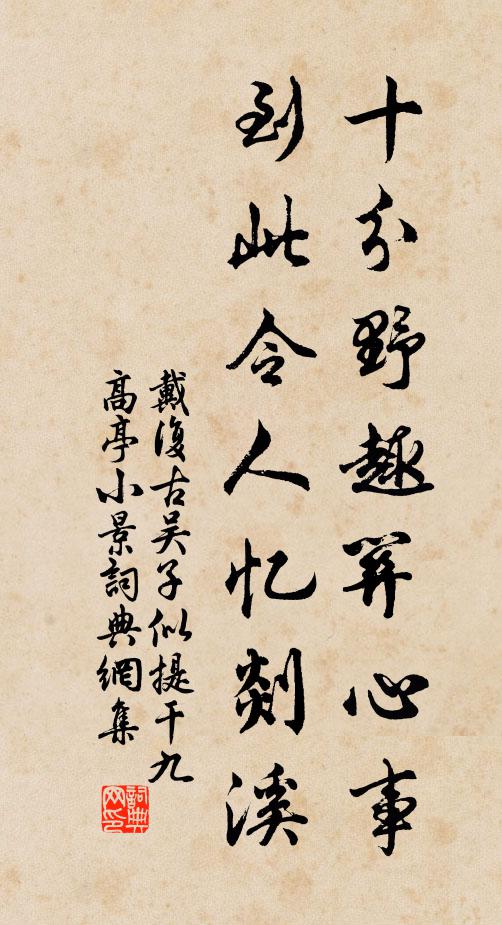 十分野趣羿心事
到此令人忆剡溪
戴復古吴子似提干九
高亭小景詞典網集
詞典网印